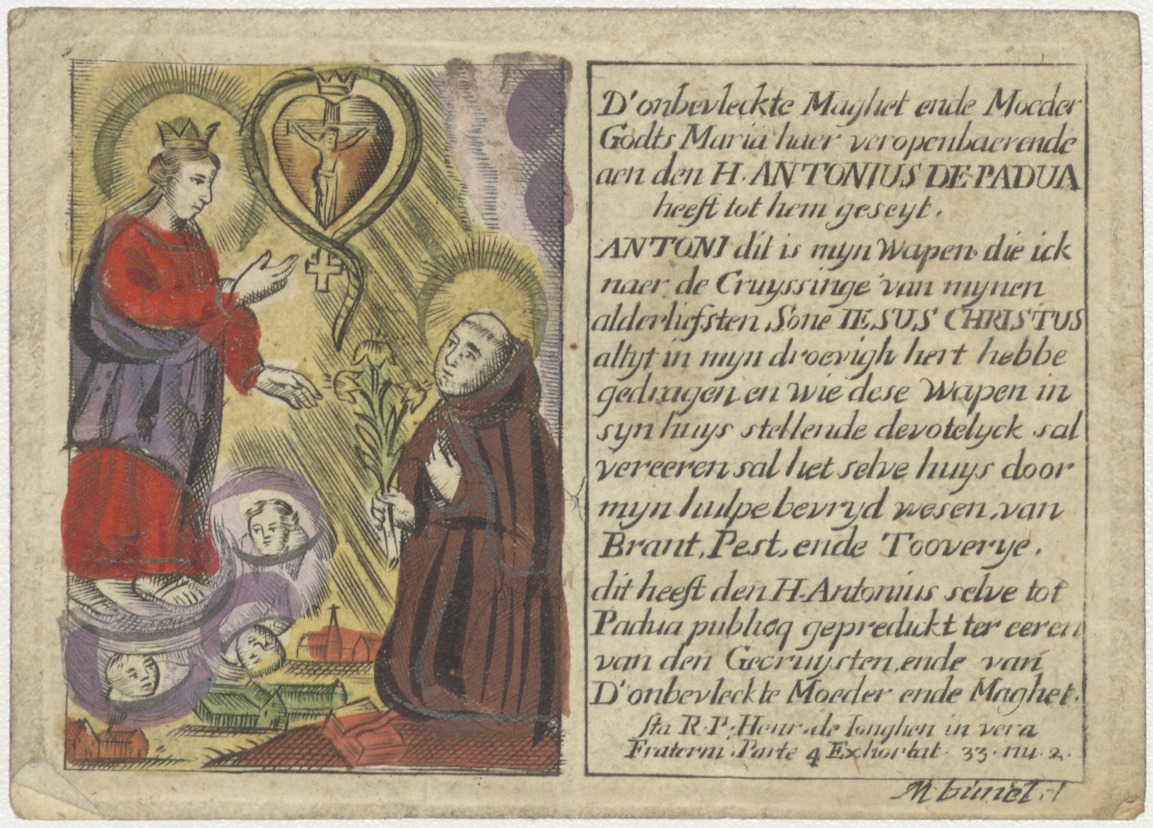 D'onbevleckte Maghet ende Moeder
Godts Maria haer veropenbaerende
aen den H. ANTONIUS DE PADUA
heeft tot hem geseyt.
ANTONI dit is myn Wapen die ick
naer de Cruyssinge van mynen
alderliefsten Sone IESUS CHRISTUS
altyt in myn droevigh hert hebbe
gedragen, en wie dese Wapen in
syn huys stellende devotelyck sal
vereeren sal het selve huys door
myn hulpe bevryd wesen, van
Brant, Pest, ende Tooverye.
dit heeft den H. Antonius selve tot
Padua publicq gepredickt ter eeren
van den Gecruysten, ende van
D'onbevleckte Moeder ende Maghet.
Ita R. P. Henr. de Ionghen in vera
Fraterni. Parte 4 Exhortat. 33. nu. 2.